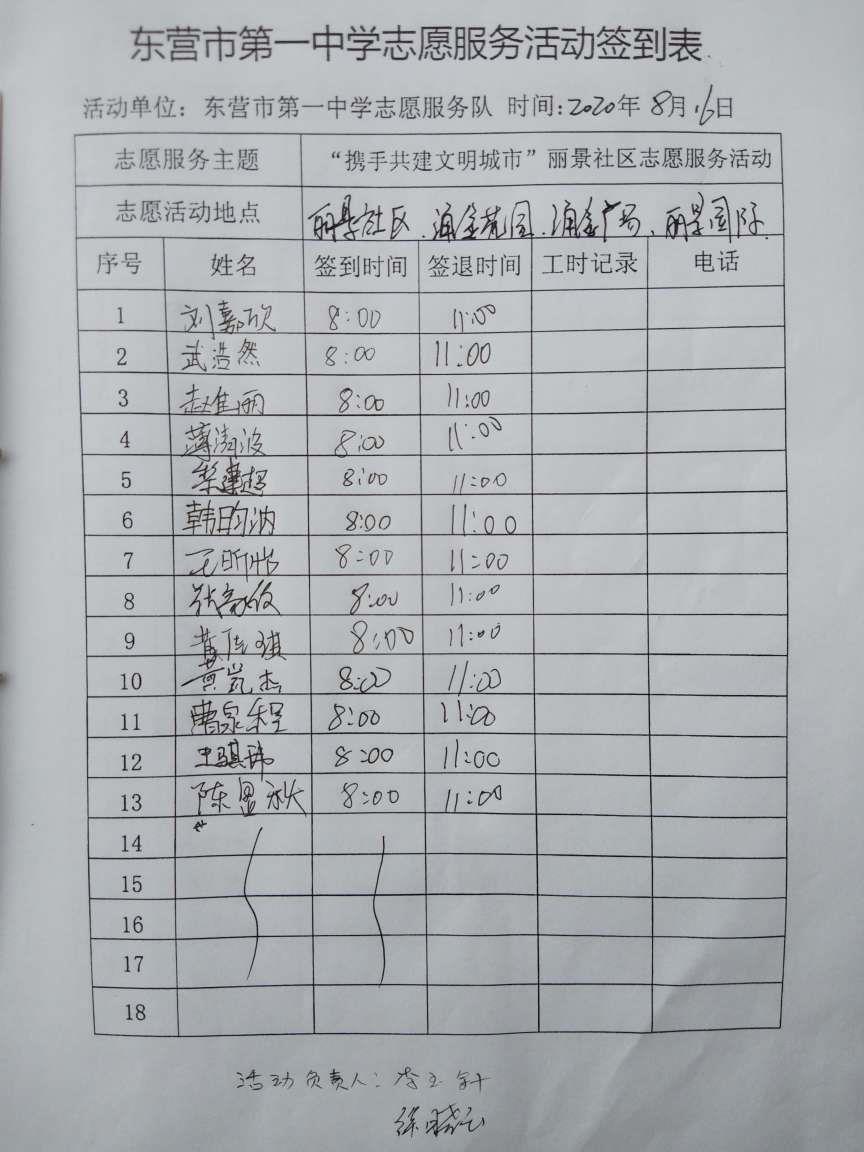 东营市第一中学志愿服务活动签到表
活动单位：东营市第一中学志愿服务队 时间:2020年8月16日
志愿服务主题 “携手共建文明城市”丽景社区志愿服务活动
志愿活动地点 丽景社区、浦金花园、浦金广场、丽景国际
序号 姓名 签到时间 签退时间 工时记录 电话
1 刘嘉欣 8:00 11:00
2 武浩然 8:00 11:00
3 赵佳丽 8:00 11:00
4 8:00 11:00
5 8:00 11:00
6 韩昀汭 8:00 11:00
7 8:00 11:00
8 8:00 11:00
9 黄佳琪 8:00 11:00
10 黄凯杰 8:00 11:00
11 曹家程 8:00 11:00
12 王骐玮 8:00 11:00
13 8:00 11:00
14
15
16
17
18
活动负责人：李玉
徐晓云